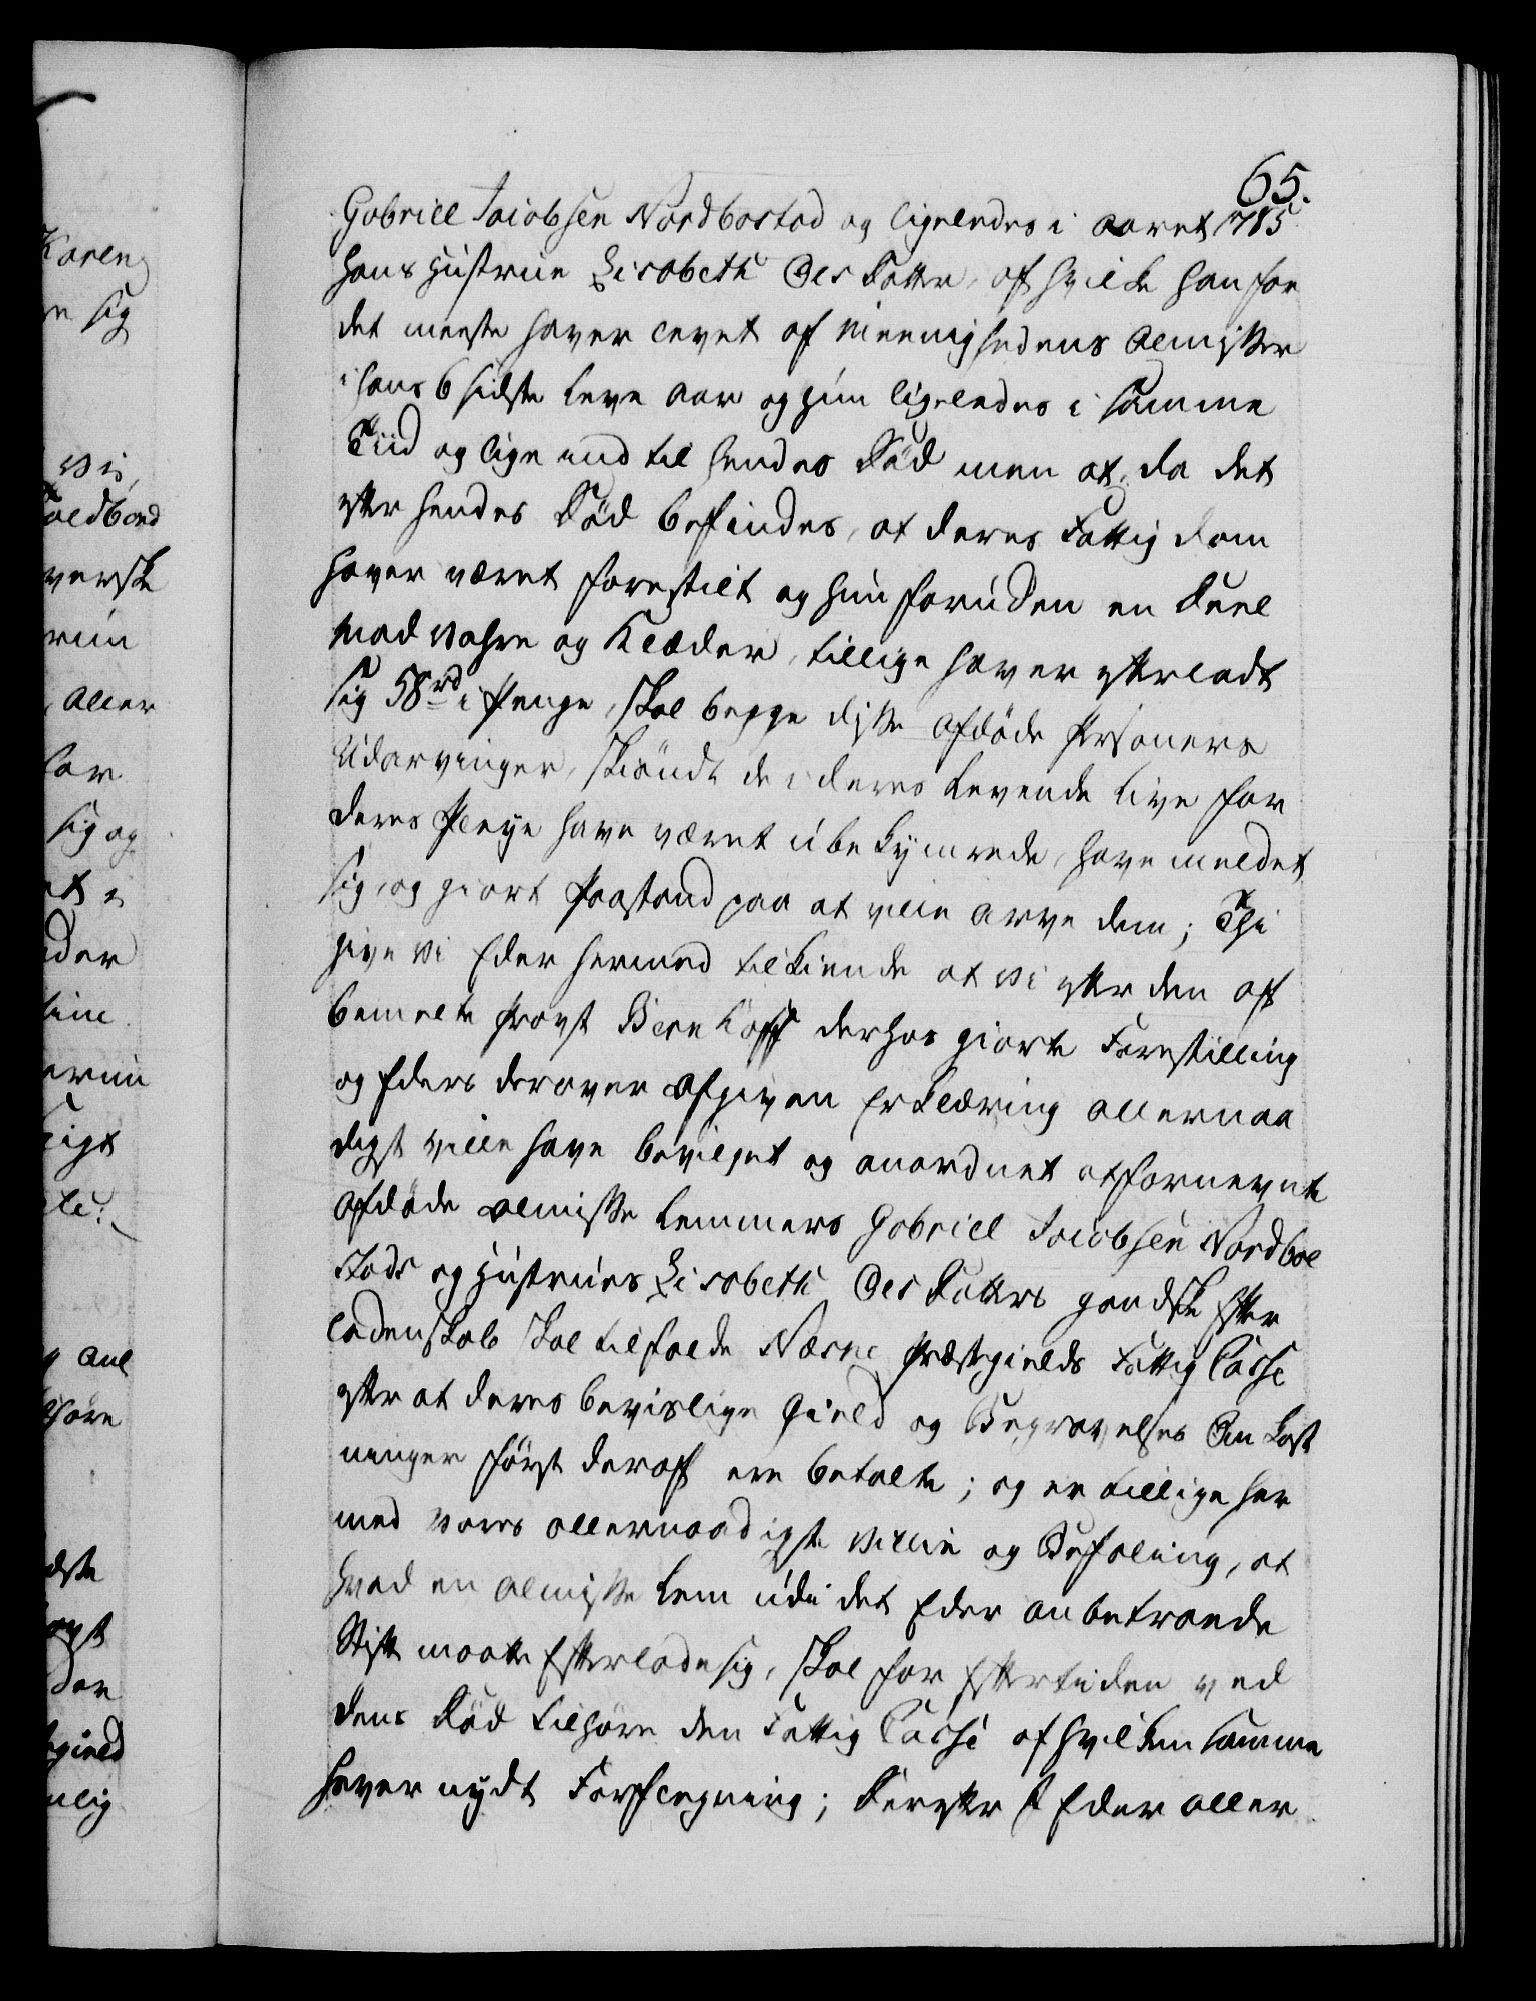 65.
Gabriel Jacobsen Nordbostad og ligeledes i Aaret 1785
hans Hustrue Lisabeth Ols Datter, af hvilke han for
det meeste haver levet af Meenighedens Almisser
i hans 6 sidste Leve Aar og hun ligeledes i samme
Tiid og lige ind til hendes Död men at, da det
efter hendes Död befindes, at deres Fattigdom
haver været forestilt og hun foruden en Deel
Mad Vahre og Klæder, tillige haver efterladt
sig 58 rd i Penge, skal begge disse Afdöde Personers
Udarvinger, skiöndt de i deres Levende Live for
deres Pleye have været übekymrede, have meldet
sig, og giort Paastand paa at ville arve dem; Thi
give Vi Eder hermed tilkiende at Vi efter den af
bemelte Provst Bernhoff derhos giorte Forestilling
og Eders derover Afgivne Erklæring allernaa
digst ville have bevilget og anordnet at fornevnte
Afdöde Almisse Lemmers Gabriel Jacobsen Nordbol
stads og Hustrues Lisabeth Ols Datters gandske Efter
ladenskab skal tilfalde Næsne Præstegields Fattig Casse
efter at deres bevislige Gield og Begravelses Omkost
ninger först deraf ere betalte; og er tillige her
med Vores allernaadigste Villie og Befaling, at
hvad en Almisse Lem udi det Eder anbetroede
Stift maatte Efterlade sig, skal for Eftertiden ved
dens Död tilhöre den Fattig Casse af hvilken samme
haver nydt Forplegning; Derefter I Eder aller